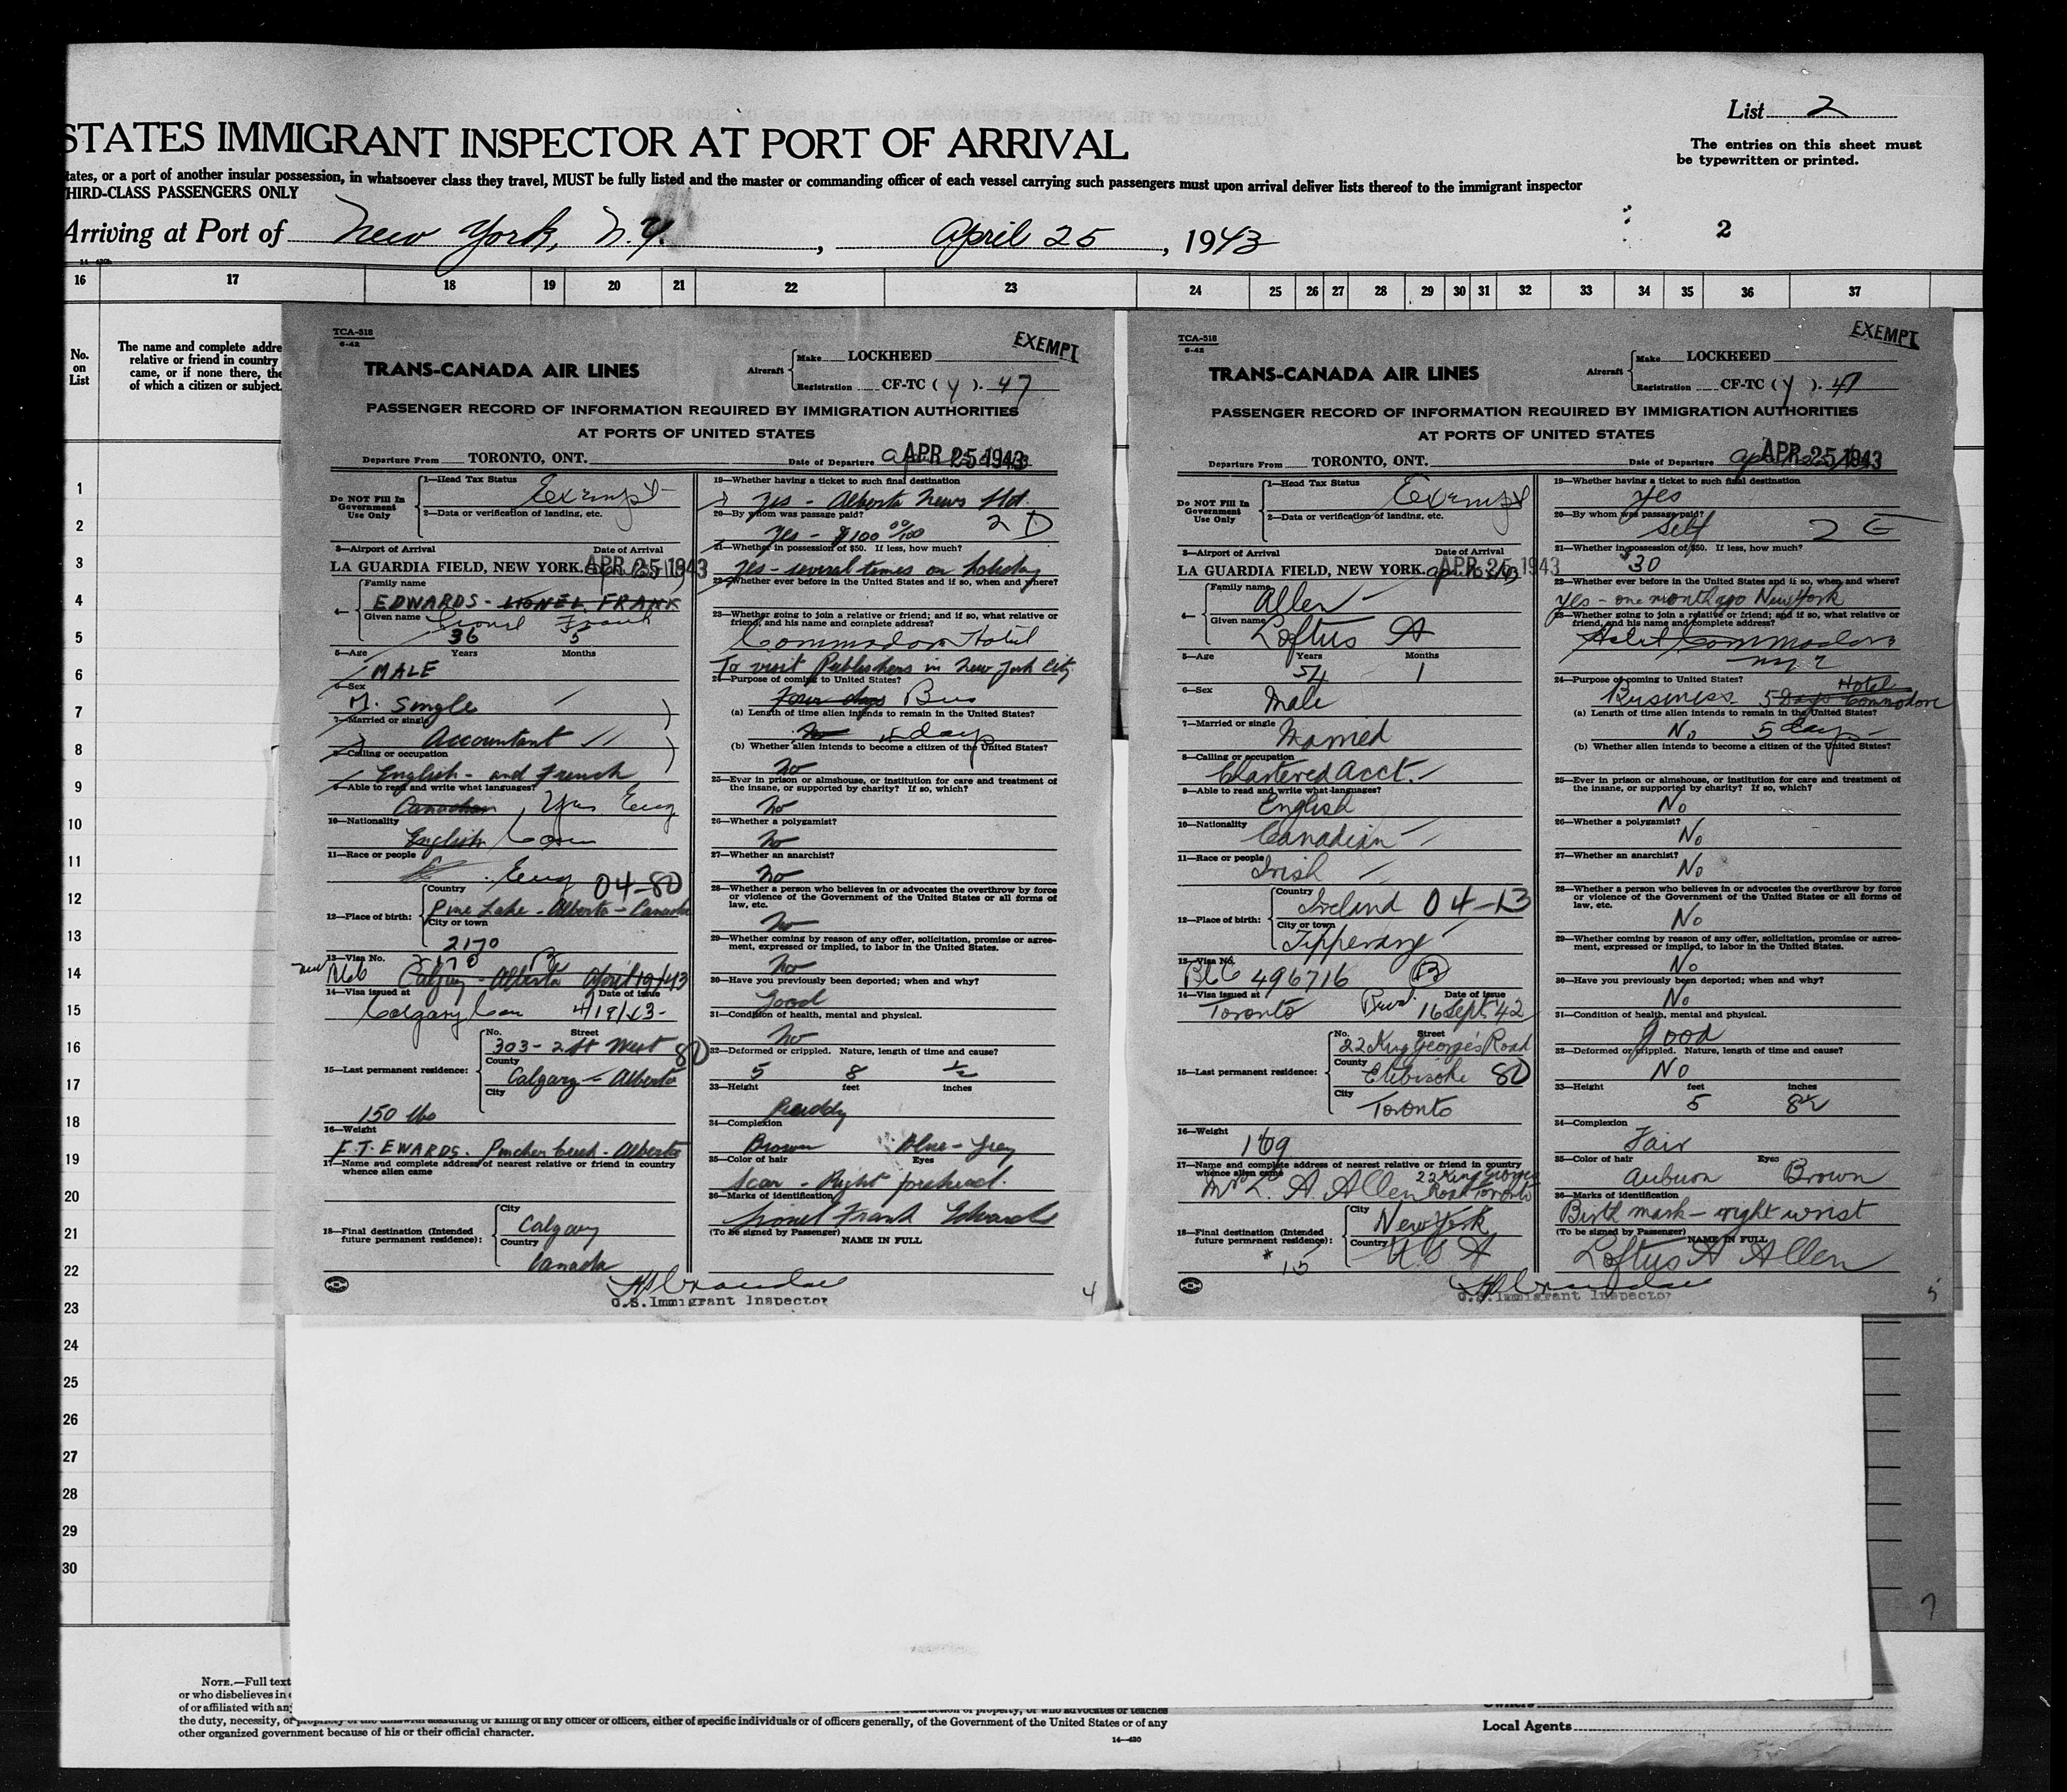 List 2
STATES IMMIGRANT INSPECTOR AT PORT OF ARRIVAL
The entries on this sheet must
be typewritten or printed.
tates, or a port of another insular possession, in whatsoever class they travel, MUST be fully listed and the master or commanding officer of each vessel carrying such passengers must upon arrival deliver lists thereof to the immigrant inspector
THIRD-CLASS PASSENGERS ONLY
Arriving at Port of New York, N.Y., April 25, 1943
2
16 17 18 19 20 21 22 23 24 25 26 27 28 29 30 31 32 33 34 35 36 37
No.
on
List
The name and complete addre
relative or friend in country
came, or if none there, the
of which a citizen or subject.
1
2
3
4
5
6
7
8
9
10
11
12
13
14
15
16
17
18
19
20
21
22
23
24
25
26
27
28
29
30
TCA-518
6-42
EXEMPT
TRANS-CANADA AIR LINES
Aircraft
Make LOCKHEED
Registration CF-TC (Y). 47
PASSENGER RECORD OF INFORMATION REQUIRED BY IMMIGRATION AUTHORITIES
AT PORTS OF UNITED STATES
Departure From TORONTO, ONT. Date of Departure APR 25 1943
Do NOT Fill In
Government
Use Only
1—Head Tax Status Exempt
2—Data or verification of landing, etc.
3—Airport of Arrival Date of Arrival
LA GUARDIA FIELD, NEW YORK. APR 25 1943
4—
Family name
EDWARDS - LIONEL FRANK
Given name Lionel Frank
36 5
5—Age Years Months
MALE
6—Sex
M. Single
7—Married or single
Accountant
8—Calling or occupation
English - and French
9—Able to read and write what languages?
Canadian Yes Eng
10—Nationality
English Can
11—Race or people
Eng 04-80
12—Place of birth:
Country
Pine Lake - Alberta - Canada
City or town
2170
13—Visa No.
2170
Calgary - Alberta April 19/43
14—Visa issued at Date of issue
Calgary Can 4/19/43
15—Last permanent residence:
No. Street
303 - 2 St West 80
County
Calgary - Alberta
City
150 lbs
16—Weight
F.T. EWARDS. Pincher Creek - Alberta
17—Name and complete address of nearest relative or friend in country
whence alien came
18—Final destination (Intended
future permanent residence):
City
Calgary
Country
Canada
19—Whether having a ticket to such final destination
Yes - Alberta News Ltd.
20—By whom was passage paid? 2 D
Yes - $100 00/100
21—Whether in possession of $50. If less, how much?
Yes - several times on holiday
22—Whether ever before in the United States and if so, when and where?
23—Whether going to join a relative or friend; and if so, what relative or
friend, and his name and complete address?
Commodore Hotel
To visit Publishers in New York City
24—Purpose of coming to United States?
Four days Bus
(a) Length of time alien intends to remain in the United States?
No days
(b) Whether alien intends to become a citizen of the United States?
No
25—Ever in prison or almshouse, or institution for care and treatment of
the insane, or supported by charity? If so, which?
No
26—Whether a polygamist?
No
27—Whether an anarchist?
No
28—Whether a person who believes in or advocates the overthrow by force
or violence of the Government of the United States or all forms of
law, etc.
No
29—Whether coming by reason of any offer, solicitation, promise or agree-
ment, expressed or implied, to labor in the United States.
No
30—Have you previously been deported; when and why?
Good
31—Condition of health, mental and physical.
No
32—Deformed or crippled. Nature, length of time and cause?
5 8 1/2
33—Height feet inches
Ruddy
34—Complexion
Brown Blue - Grey
35—Color of hair Eyes
Scar - Right forehead.
36—Marks of identification
Lionel Frank Edwards
(To be signed by Passenger) NAME IN FULL
U.S. Immigrant Inspector
4
TCA-518
6-42
EXEMPT
TRANS-CANADA AIR LINES
Aircraft
Make LOCKHEED
Registration CF-TC (Y). 47
PASSENGER RECORD OF INFORMATION REQUIRED BY IMMIGRATION AUTHORITIES
AT PORTS OF UNITED STATES
Departure From TORONTO, ONT. Date of Departure APR 25 1943
Do NOT Fill In
Government
Use Only
1—Head Tax Status Exempt
2—Data or verification of landing, etc.
3—Airport of Arrival Date of Arrival
LA GUARDIA FIELD, NEW YORK. APR 25 1943
4—
Family name
Allen
Given name Loftus A
5—Age Years Months
54 1
6—Sex
Male
7—Married or single
Married
8—Calling or occupation
Chartered Acct.
9—Able to read and write what languages?
English
10—Nationality
Canadian
11—Race or people
Irish
12—Place of birth:
Country
Ireland 04-13
City or town
Tipperary
13—Visa No.
BCC 496716 B
14—Visa issued at Date of issue
Toronto 16 Sept 42
15—Last permanent residence:
No. Street
22 King Georges Road
County
Etobicoke 80
City
Toronto
16—Weight
169
17—Name and complete address of nearest relative or friend in country
whence alien came
Mrs L. A. Allen 22 King Georges
Road Toronto
18—Final destination (Intended
future permanent residence):
City
New York
Country U S A
* 15
19—Whether having a ticket to such final destination
Yes
20—By whom was passage paid?
Self
21—Whether in possession of $50. If less, how much?
$30
22—Whether ever before in the United States and if so, when and where?
Yes - one month ago New York
23—Whether going to join a relative or friend; and if so, what relative or
friend, and his name and complete address?
Hotel Commodore
24—Purpose of coming to United States?
Business 5 Days Hotel Commodore
(a) Length of time alien intends to remain in the United States?
No 5 days
(b) Whether alien intends to become a citizen of the United States?
25—Ever in prison or almshouse, or institution for care and treatment of
the insane, or supported by charity? If so, which?
No
26—Whether a polygamist?
No
27—Whether an anarchist?
No
28—Whether a person who believes in or advocates the overthrow by force
or violence of the Government of the United States or all forms of
law, etc.
No
29—Whether coming by reason of any offer, solicitation, promise or agree-
ment, expressed or implied, to labor in the United States.
No
30—Have you previously been deported; when and why?
No
31—Condition of health, mental and physical.
good
32—Deformed or crippled. Nature, length of time and cause?
No
33—Height feet inches
5 8½
34—Complexion
Fair
35—Color of hair Eyes
Auburn Brown
36—Marks of identification
Birth mark - right wrist
(To be signed by Passenger) NAME IN FULL
Loftus A Allen
U.S. Immigrant Inspector
5
7
NOTE.—Full text
or who disbelieves in
of or affiliated with any
the duty, necessity, or propriety of the unlawful assaulting or killing of any officer or officers, either of specific individuals or of officers generally, of the Government of the United States or of any
other organized government because of his or their official character.
14—420
Owners
Local Agents